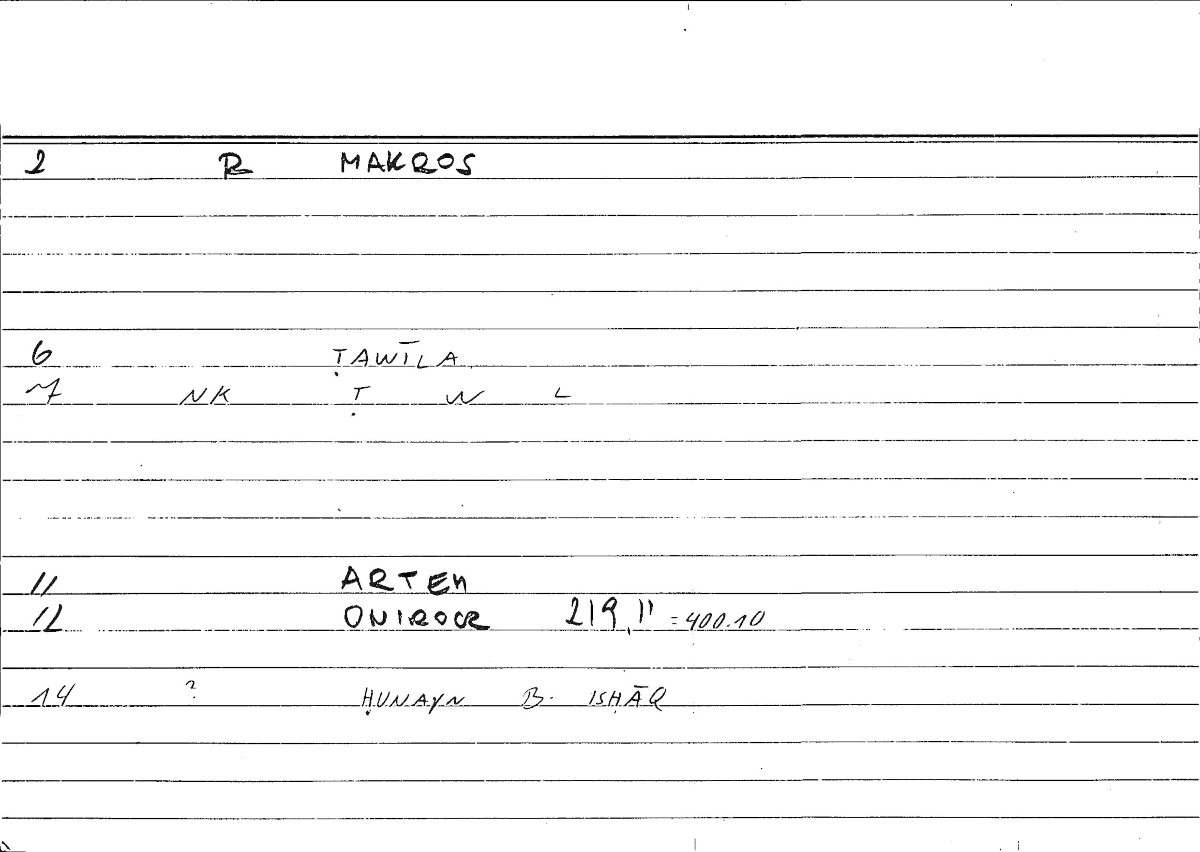 2 R MAKROS
6 ṬAWĪLA
7 NK Ṭ W L
11 ARTEM
12 ONIROCR 219,11 = 400.10
14 ? ḤUNAYN B. ISḤĀQ